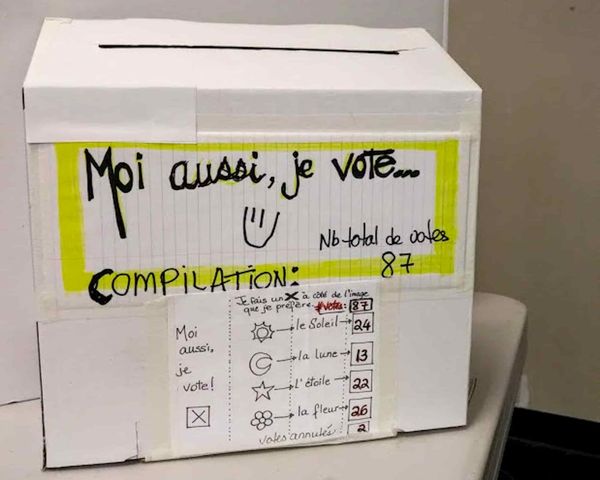 Moi aussi, je vote...
Nb total de votes
87
COMPILATION:
Je fais un X à côté de l'image
que je préfère. #votes: 87
Moi
aussi,
je
vote!
le Soleil 24
la lune 13
l'étoile 22
la fleur 26
votes annulés 2